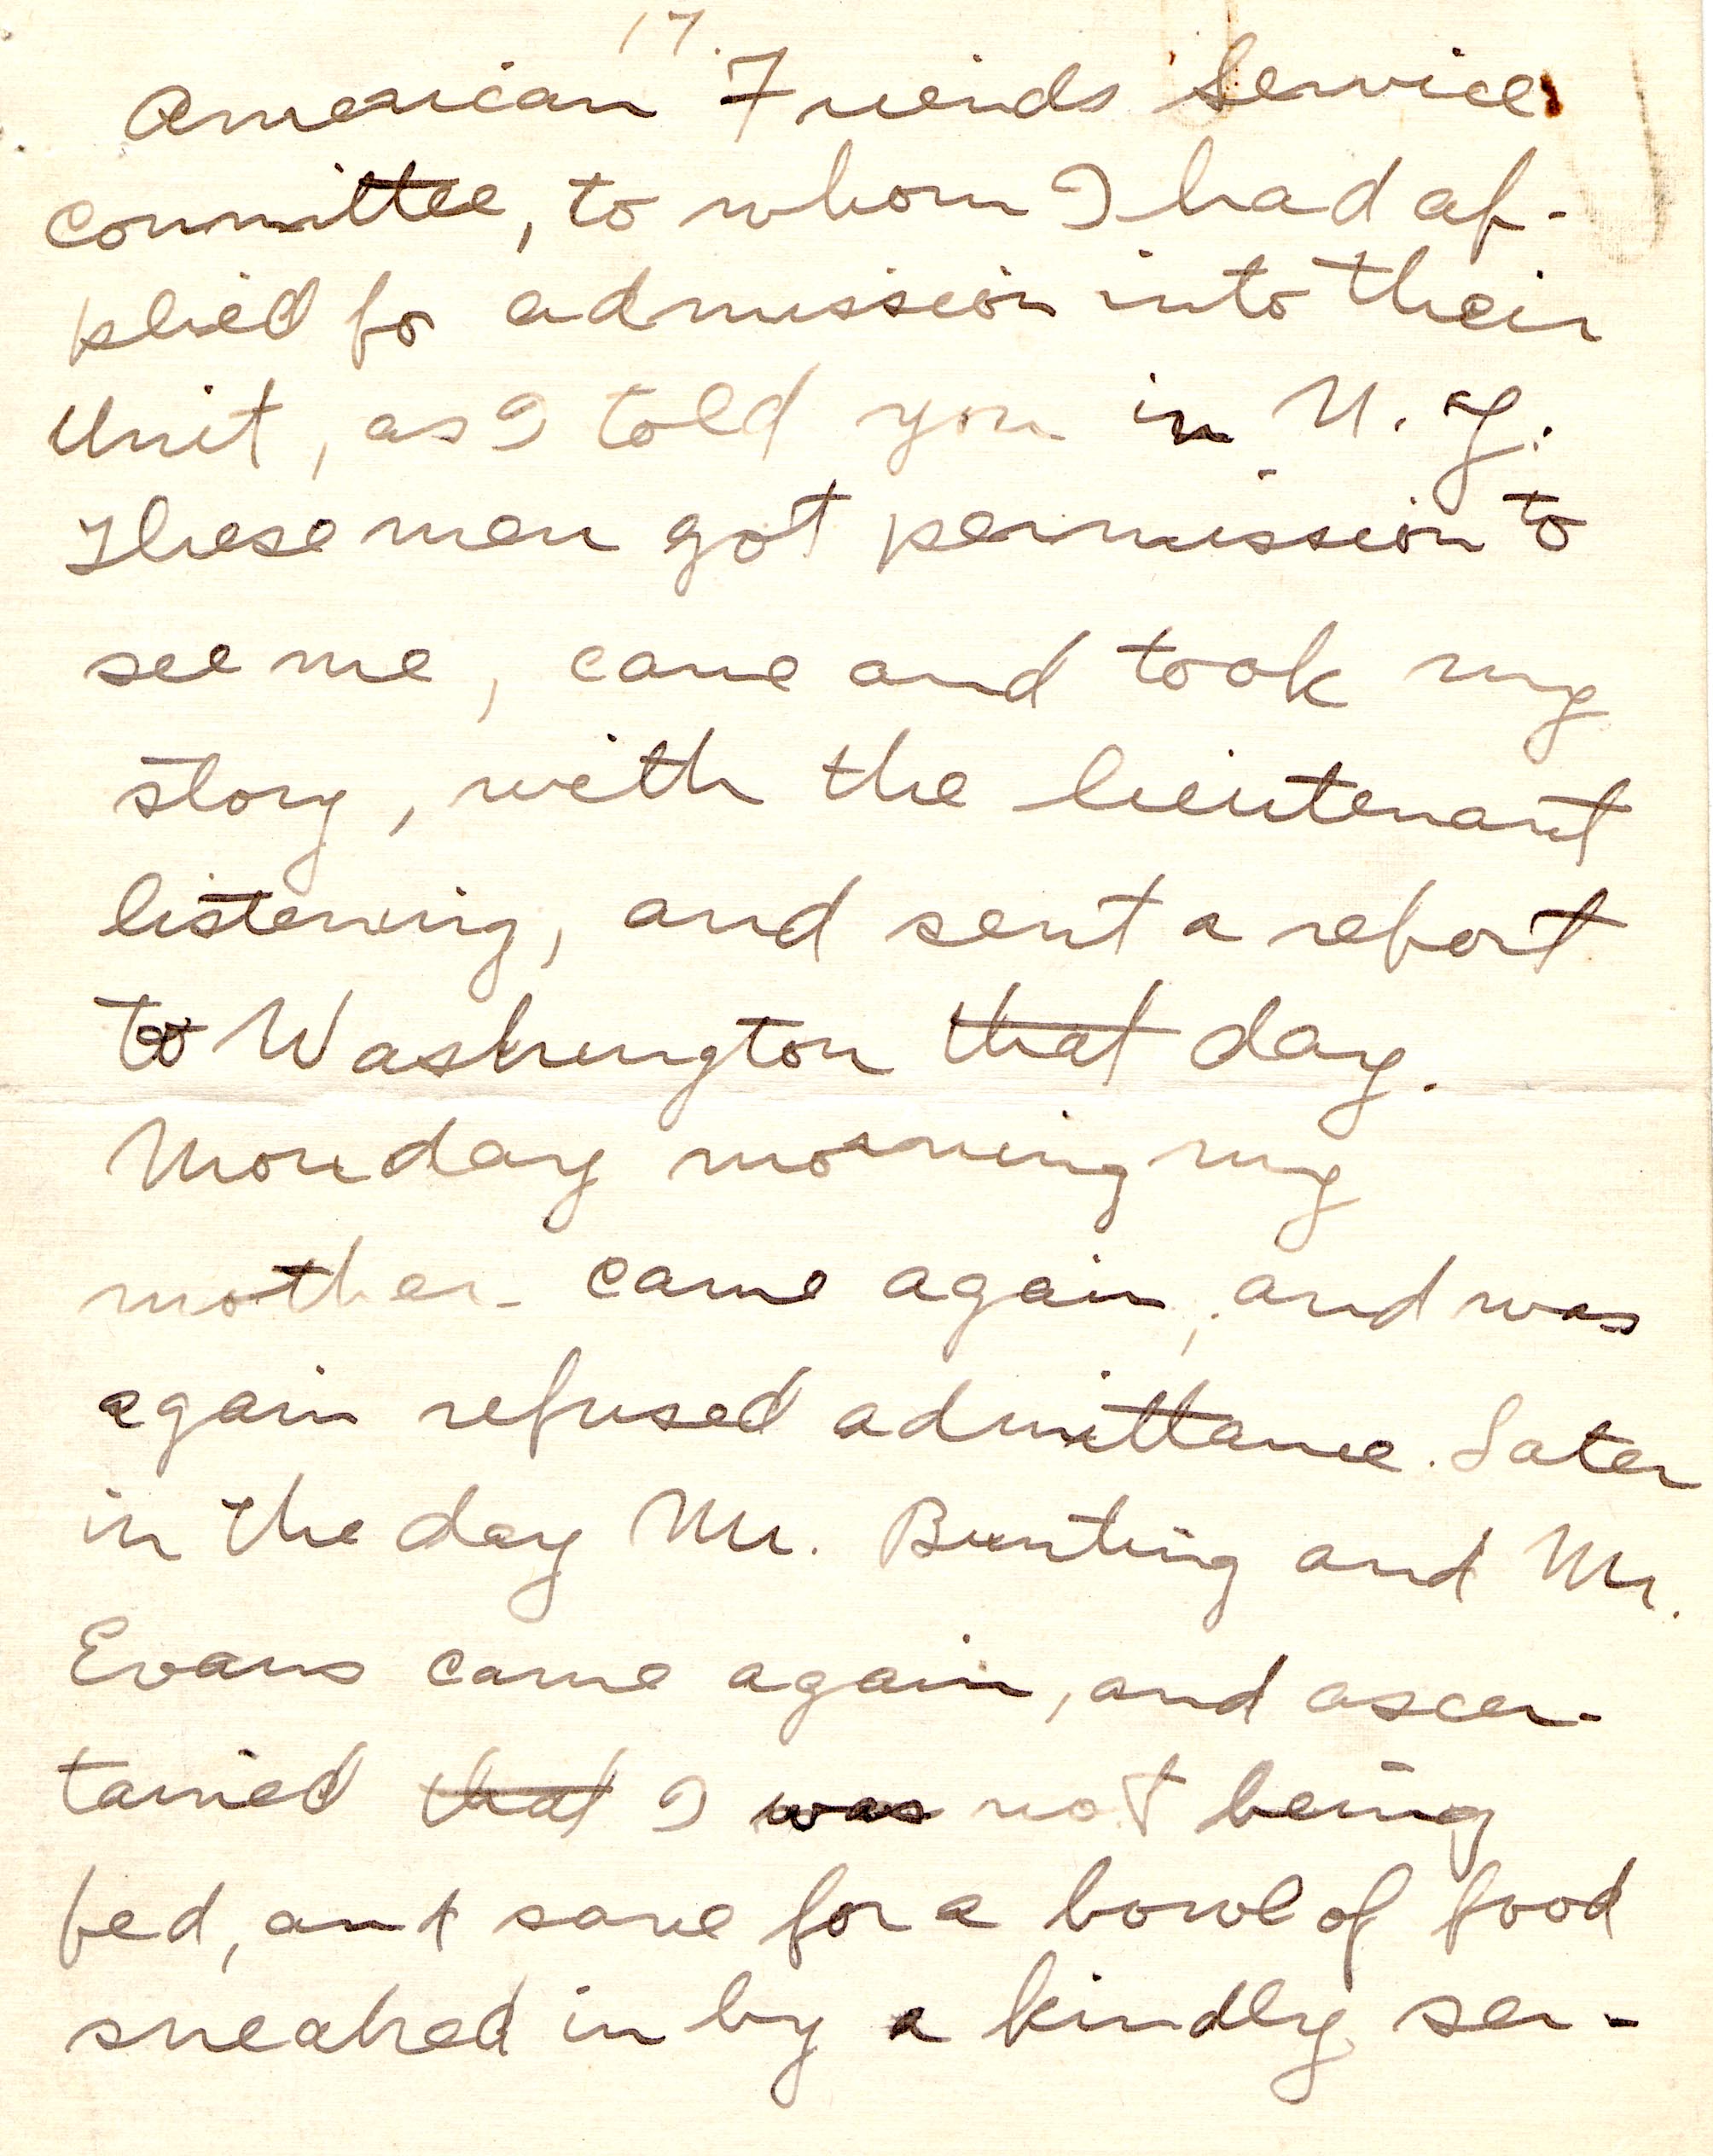 17.
American Friends Service
Committee, to whom I had ap-
plied fo admission into their
Unit, as I told you in N. Y.
These men got permission to
see me, came and took my
story, with the lieutenant
listening, and sent a report
to Washington that day.
Monday morning my
mother came again, and was
again refused admittance. Later
in the day Mr. Bunting and Mr.
Evans came again, and ascer-
tained that I was not being
fed, and save for a bowl of food
sneaked in by a kindly ser-